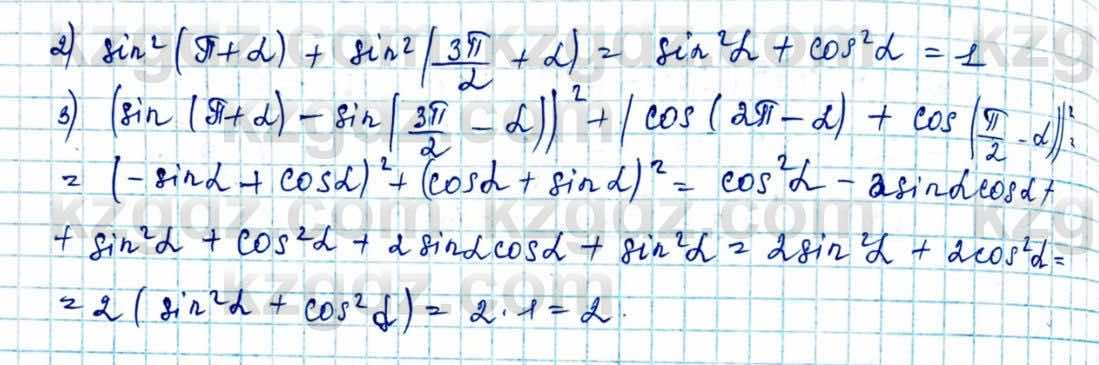 2) sin²(π+α) + sin²(3π/2 + α) = sin²α + cos²α = 1
3) (sin(π+α) - sin(3π/2 - α))² + (cos(2π-α) + cos(π/2 - α))² =
= (-sinα + cosα)² + (cosα + sinα)² = cos²α - 2sinαcosα +
+ sin²α + cos²α + 2sinαcosα + sin²α = 2sin²α + 2cos²α =
= 2(sin²α + cos²α) = 2·1 = 2.